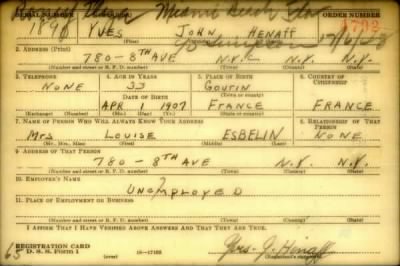 Miami Beach, Fla
SERIAL NUMBER ORDER NUMBER
1898 YVES JOHN HENAFF 1713
2. ADDRESS (Print)
780 - 8TH AVE N.Y.C. N.Y. N.Y.
(Number and street or R. F. D. number) (Town) (County) (State)
3. TELEPHONE 4. AGE IN YEARS 5. PLACE OF BIRTH 6. COUNTRY OF CITIZENSHIP
NONE 33 GOUTIN
DATE OF BIRTH (Town or county)
APR 1 1907 FRANCE FRANCE
(Exchange) (Number) (Mo.) (Day) (Yr.) (State or country)
7. NAME OF PERSON WHO WILL ALWAYS KNOW YOUR ADDRESS 8. RELATIONSHIP OF THAT PERSON
Mrs LOUISE ESBELIN NONE
(Mr., Mrs., Miss) (First) (Middle) (Last)
9. ADDRESS OF THAT PERSON
780 - 8TH AVE N.Y. N.Y.
(Number and street or R. F. D. number) (Town) (County) (State)
10. EMPLOYER'S NAME
UNEMPLOYED
11. PLACE OF EMPLOYMENT OR BUSINESS
(Number and street or R. F. D. number) (Town) (County) (State)
I AFFIRM THAT I HAVE VERIFIED ABOVE ANSWERS AND THAT THEY ARE TRUE.
REGISTRATION CARD
D. S. S. Form 1 (over) 16-17105 Yves. J. Henaff
65 (Registrant's signature)